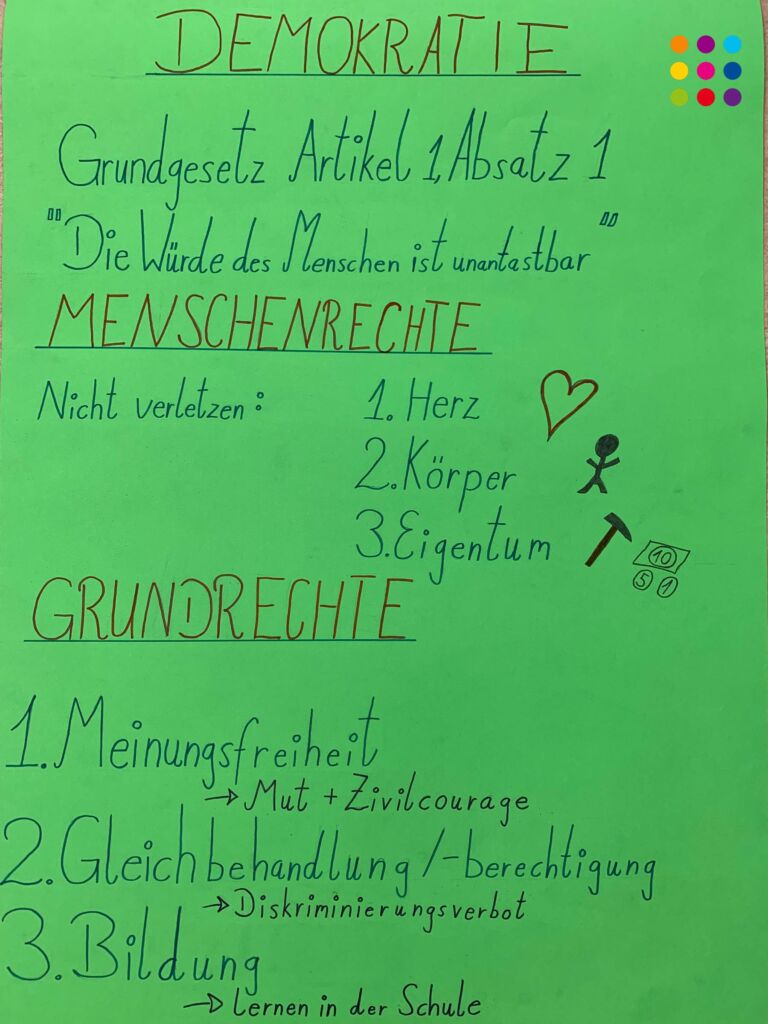 DEMOKRATIE
Grundgesetz Artikel 1, Absatz 1
"Die Würde des Menschen ist unantastbar"
MENSCHENRECHTE
Nicht verletzen: 1. Herz
2. Körper
3. Eigentum
10
5 1
GRUNDRECHTE
1. Meinungsfreiheit
→ Mut + Zivilcourage
2. Gleichbehandlung/-berechtigung
→ Diskriminierungsverbot
3. Bildung
→ Lernen in der Schule